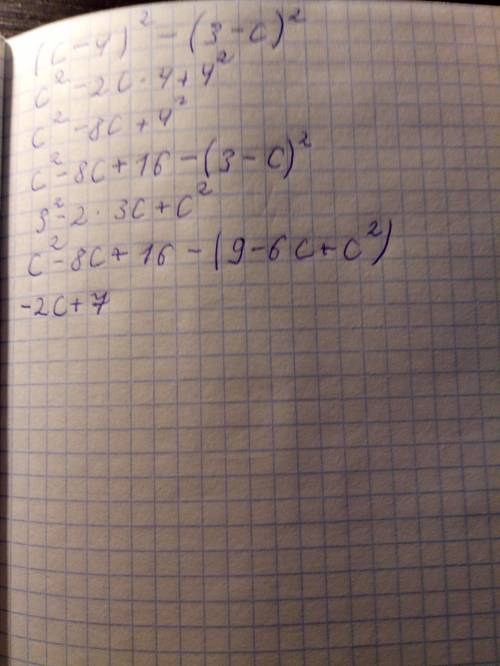 (c-4)² - (3-c)²
c² - 2c·4+4²
c² - 8c + 4²
c² - 8c + 16 - (3-c)²
3² - 2·3c + c²
c² - 8c + 16 - (9-6c+c²)
-2c+7